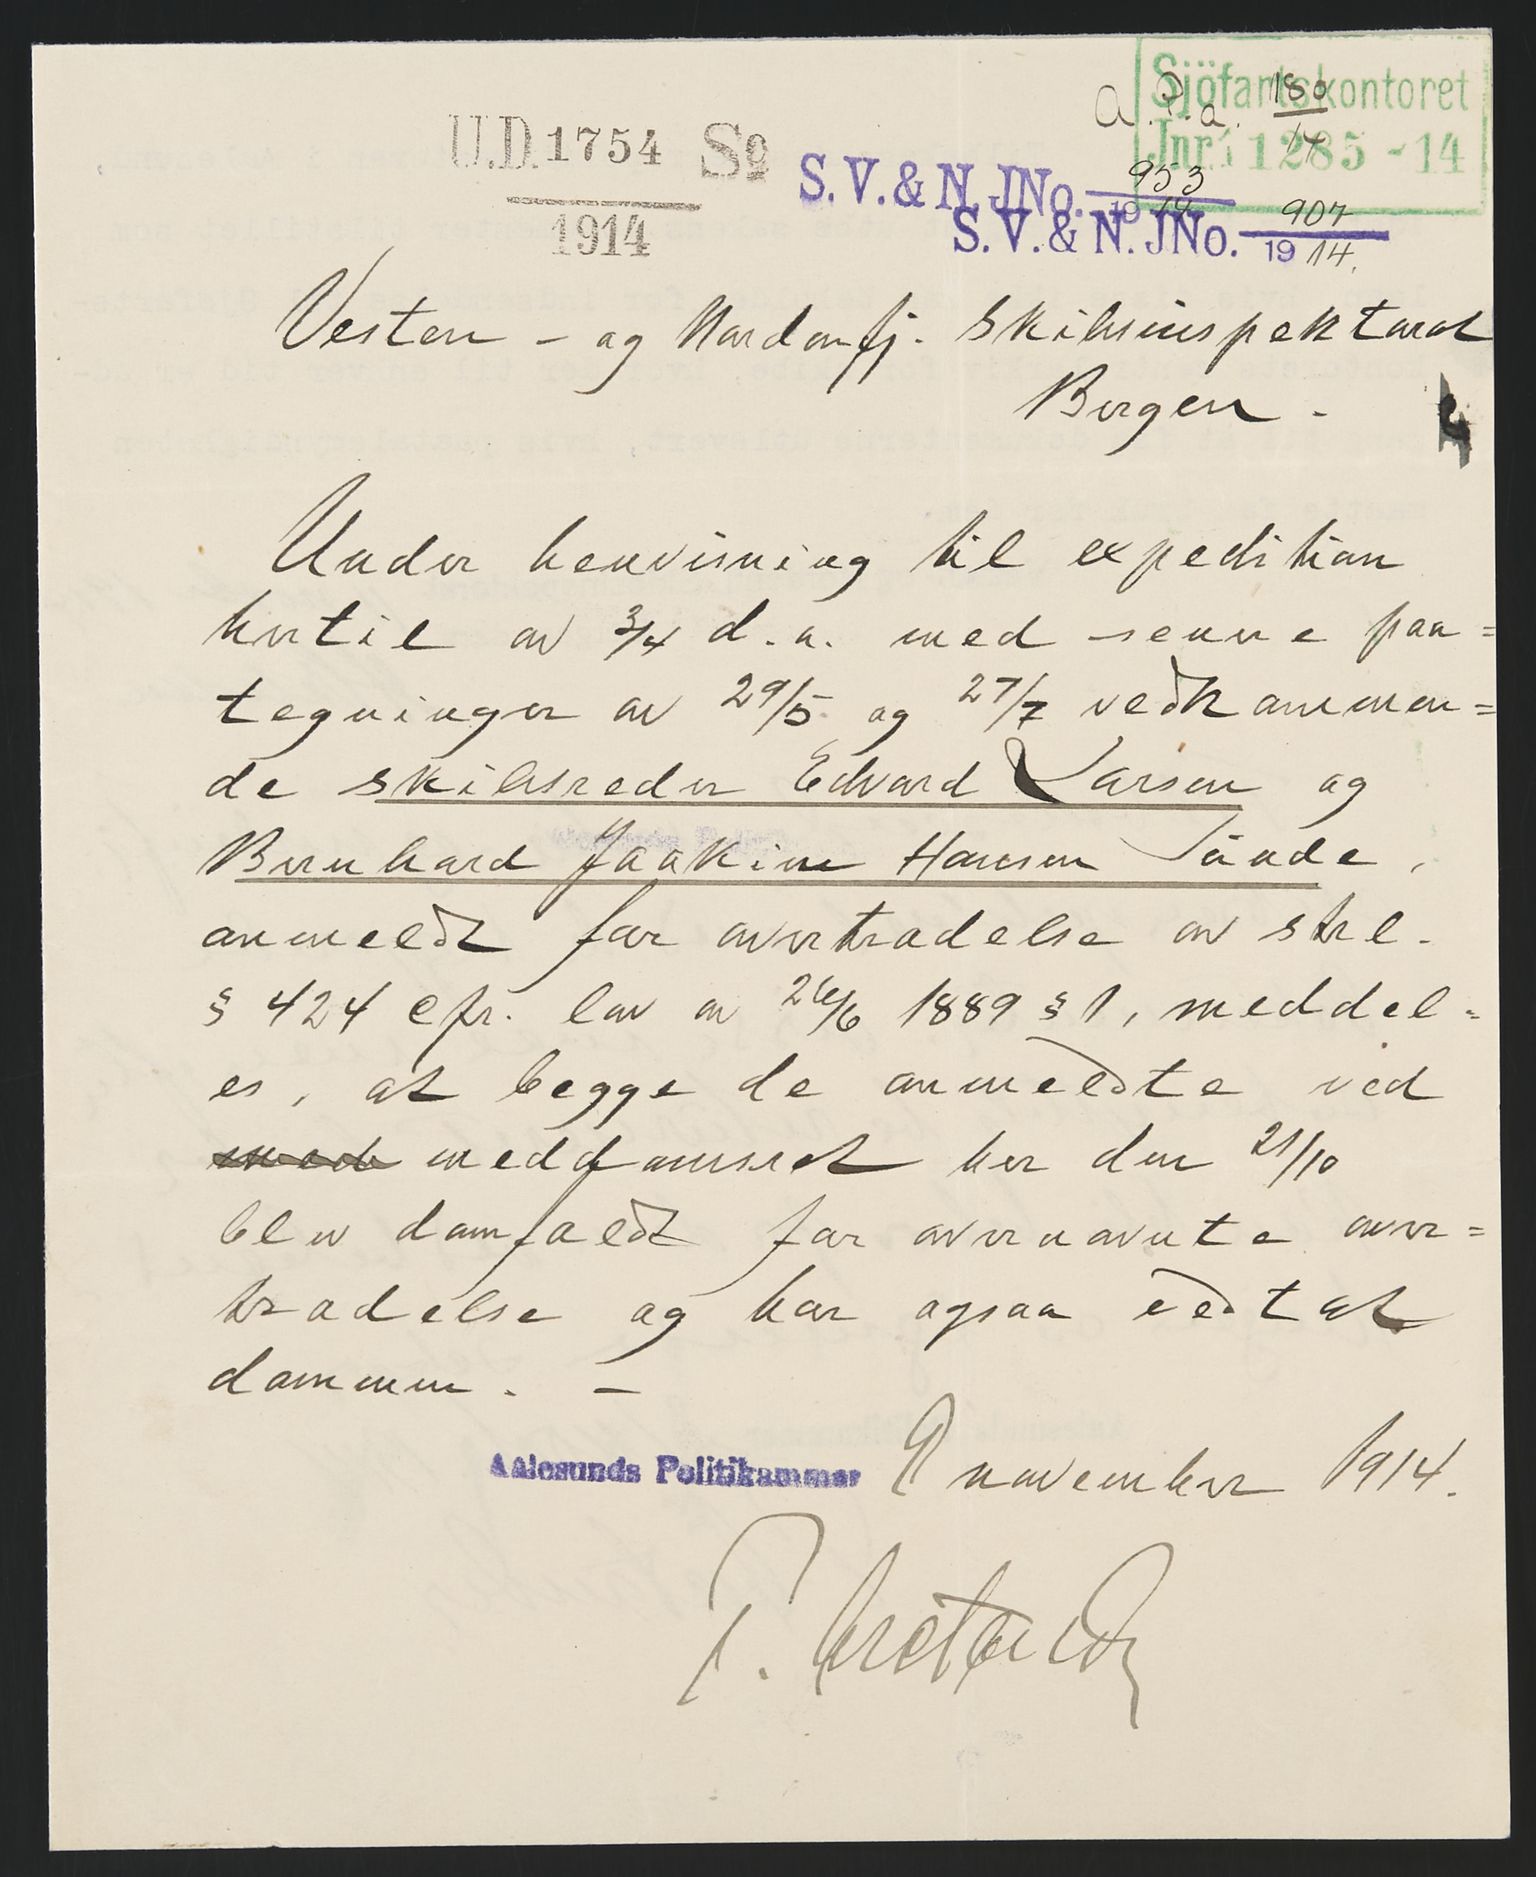 Sjöfartskontoret
a. P. a. 180/14
Jnr. 1285 - 14
U.D. 1754 So
1914
S. V. & N. JNo. 953
19 14
S. V. & N. JNo. 907
19 14.
Vesten - og Nordenfj. Skibsinspektorat
Bergen.
Under henvisning til expedition
hertil av 3/4 d. a. med senere paa=
tegninger av 29/5 og 27/7 vedkommen=
de skibsreder Edvard Larsen og
Bernhard Joakim Hansen Sünde,
anmeldt for overtrædelse av strl.
§ 424 cfr. lov av 26/6 1889 § 1, meddel=
es, at begge de anmeldte ved
meddomsret her den 21/10
blev domfældt for overnævnte over=
trædelse og har ogsaa vedtat
dommen. -
Aalesunds Politikammer 9 november 1914.